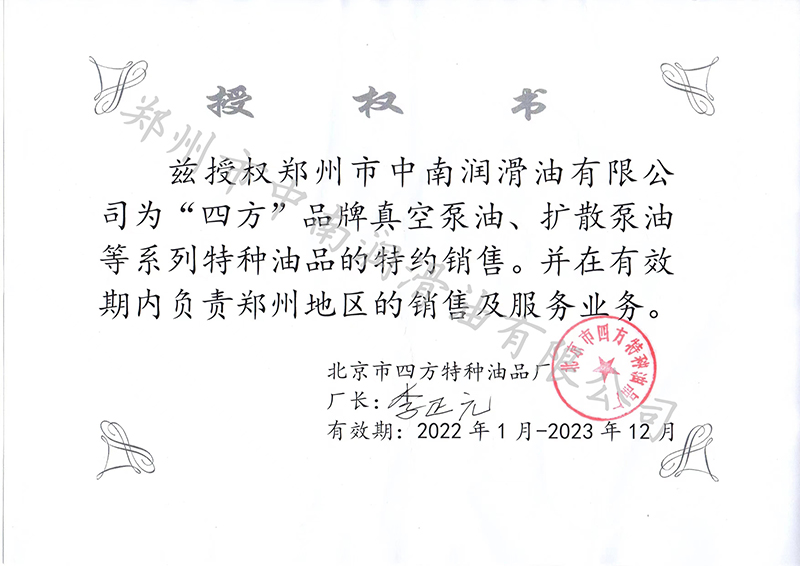 授权书
兹授权郑州市中南润滑油有限公
司为“四方”品牌真空泵油、扩散泵油
等系列特种油品的特约销售。并在有效
期内负责郑州地区的销售及服务业务。
北京市四方特种油品厂
厂长：李正元
有效期：2022年1月-2023年12月
北京市四方特种油品厂
郑州市中南润滑油有限公司